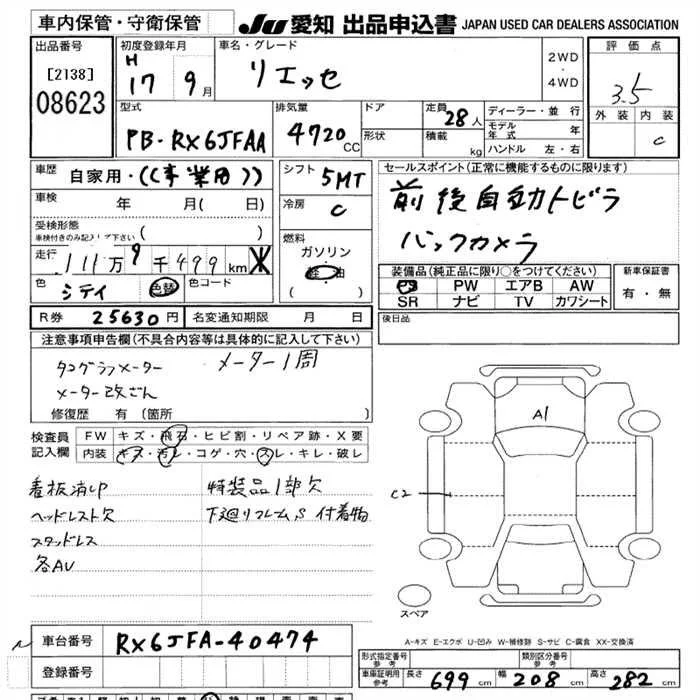 車内保管・守衛保管 JU 愛知 出品申込書 JAPAN USED CAR DEALERS ASSOCIATION
出品番号 [2138] 08623
初度登録年月 H 17 9月
車名・グレード リエッセ
2WD・4WD
評価点 3.5
外装 内装 C
型式 PB-RX6JFAA
排気量 4720CC
ドア 形状
定員 28人
積載 kg
ディーラー・並行
モデル年式 年
ハンドル 左・右
車歴 自家用・((事業用))
車検 年 月( 日)
受検形態 車検付きのみ記入して下さい ( )
走行 111万9千499km
色 シティ 色替 色コード
シフト 5MT
冷房 C
燃料 ガソリン 軽油 ( )
セールスポイント(正常に機能するものに限ります)
前後自動トビラ
バックカメラ
装備品(純正品に限り○をつけてください)
PS PW エアB AW
SR ナビ TV カワシート
新車保証書 有・無
R券 25630円 名変通知期限 月 日
後日品
注意事項申告欄(不具合内容等は具体的に記入して下さい)
タコグラフメーター メーター1周
メーター改ざん
修復歴 有 (箇所
検査員記入欄
FW キズ・飛石・ヒビ割・リペア跡・X要
内装 キズ・汚レ・コゲ・穴・スレ・キレ・破レ
看板消し 特装品1部欠
ヘッドレスト欠 下廻りフレームS 付着物
スタッドレス
各AU
A1
C2
スペア
A-キズ E-エクボ U-凹み W-補修跡 S-サビ C-腐食 XX-交換済
車台番号 RX6JFA-40474
登録番号
形式指定番号 参考 類別区分番号 参考
車庫証明用 参考 長さ 699cm 幅 208cm 高さ 282cm